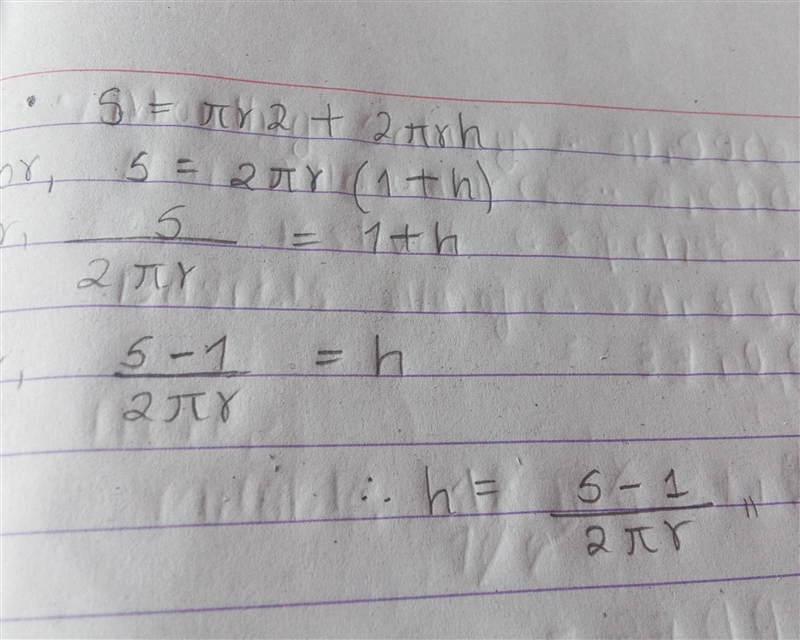 S = πr2 + 2πrh
or, S = 2πr (1+h)
r, S/2πr = 1+h
, S-1/2πr = h
∴ h = S-1/2πr "